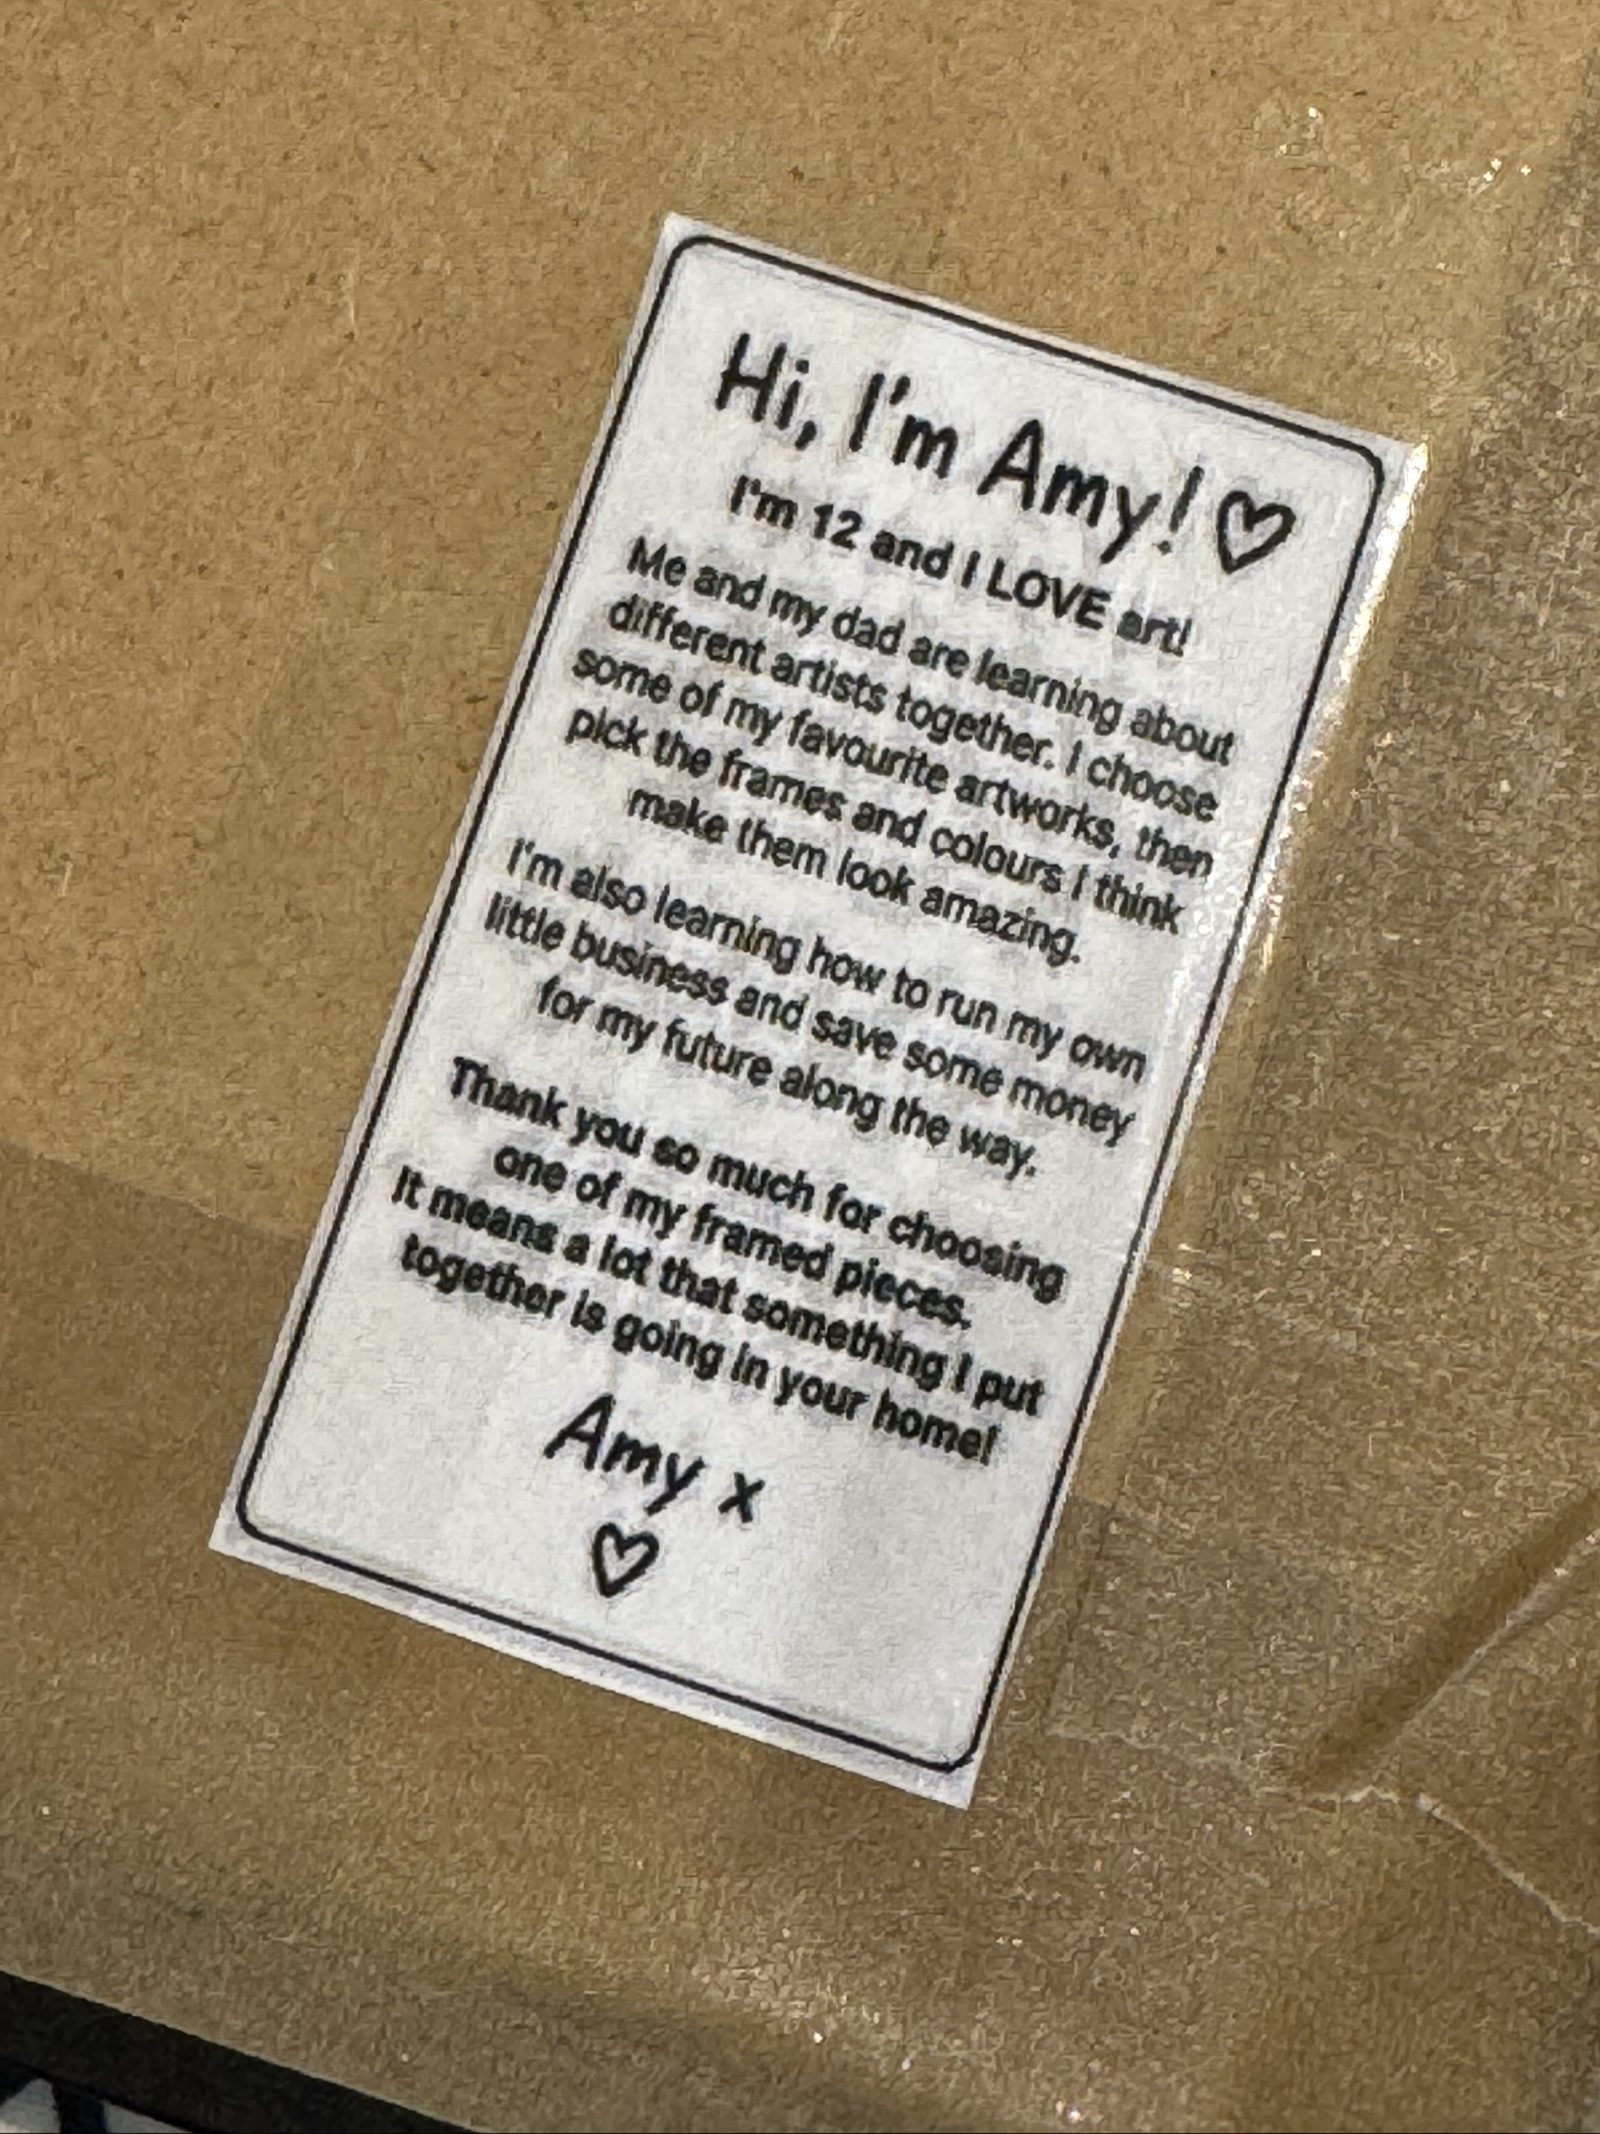 Hi, I'm Amy! ♡
I'm 12 and I LOVE art!
Me and my dad are learning about
different artists together. I choose
some of my favourite artworks, then
pick the frames and colours I think
make them look amazing.
I'm also learning how to run my own
little business and save some money
for my future along the way.
Thank you so much for choosing
one of my framed pieces.
It means a lot that something I put
together is going in your home!
Amy x
♡